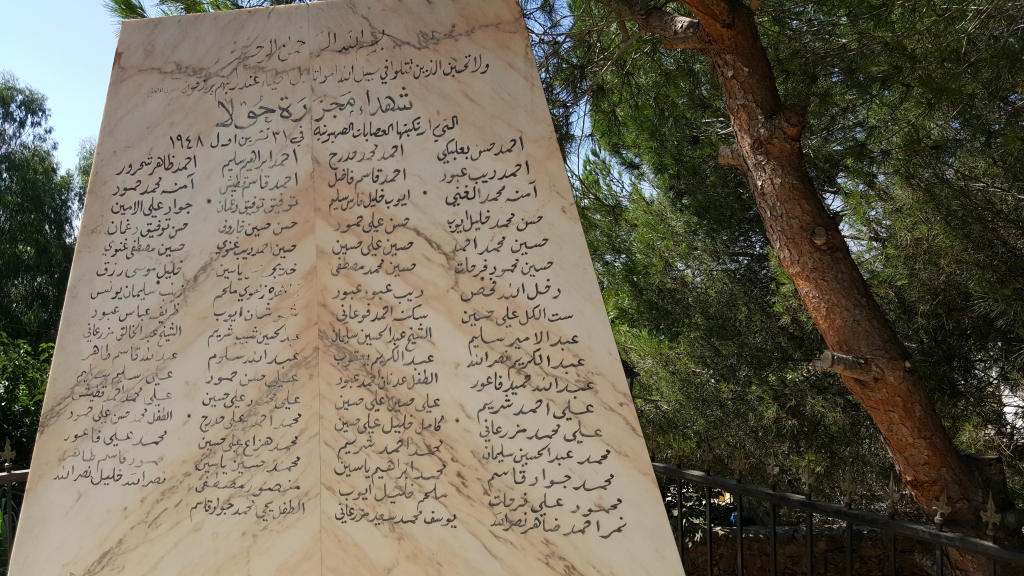 بسم الله الرحمن الرحيم
ولا تحسبن الذين قتلوا في سبيل الله امواتا بل احياء عند ربهم يرزقون
شهداء مجزرة حولا
التي ارتكبتها العصابات الصهيونية في ٣١ تشرين اول ١٩٤٨
احمد حسن بعلبكي احمد محمد قدرح احمد ابراهيم سليم احمد ظاهر شرور
احمد ديب عبود احمد قاسم فاضل احمد قاسم آمنه محمد حمود
آمنه محمد الغني ايوب خليل سليم توفيق توفيق جواد علي الامين
حسن محمد خليل ايوب حسن علي حمود حسن حسن توفيق
حسين محمد احمد حسين علي حسين حسين احمد حسين مصطفى غنوي
حسين محمود فرحات حسين محمد مصطفى خديجه ياسين خليل موسى رزق
دخل الله فحص ديب عبود عبود ديب سليمان يونس
ست الكل علي حسين سكنه احمد قوعاني شعبان ايوب ظريف عباس عبود
عبد الامير سليم الشيخ عبد الحسين سليمان عبد الحسين شريم الشيخ عبد الخالق
عبد الكريم نصرالله عبد الكريم عبد الله سلوم عبد الله قاسم طاهر
عبد الله حميد فاعور الطفل عدنان محمد عبود علي حسن حمود علي سليم سليم
علي احمد شريم علي حسين علي حسين علي علي حسين علي محمد
علي محمد مزرعاني كامل خليل علي حسين محمد احمد قدرح الطفل محمد حسن علي حمود
محمد عبد الحسين سليماني محمد احمد شريم محمد هزاع علي حسين محمد علي فاعور
محمد جواد قاسم محمد ابراهيم ياسين محمد حسين ياسين محمود قاسم طاهر
محمود علي فرحات ملحم خليل ايوب منصور مصطفى نصرالله خليل نصرالله
نمر احمد ضاهر نصرالله يوسف محمد سعيد مزرعاني الطفل يحي محمد جواد قاسم